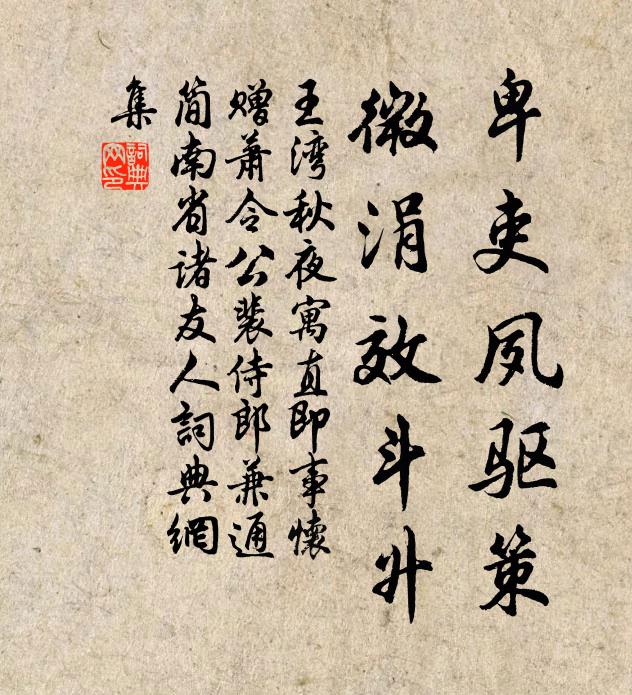 卑吏夙驱策
微涓效斗升
王湾秋夜寓直即事怀
赠萧令公裴侍郎兼通
简南省诸友人詞典網
集
詞典
网印